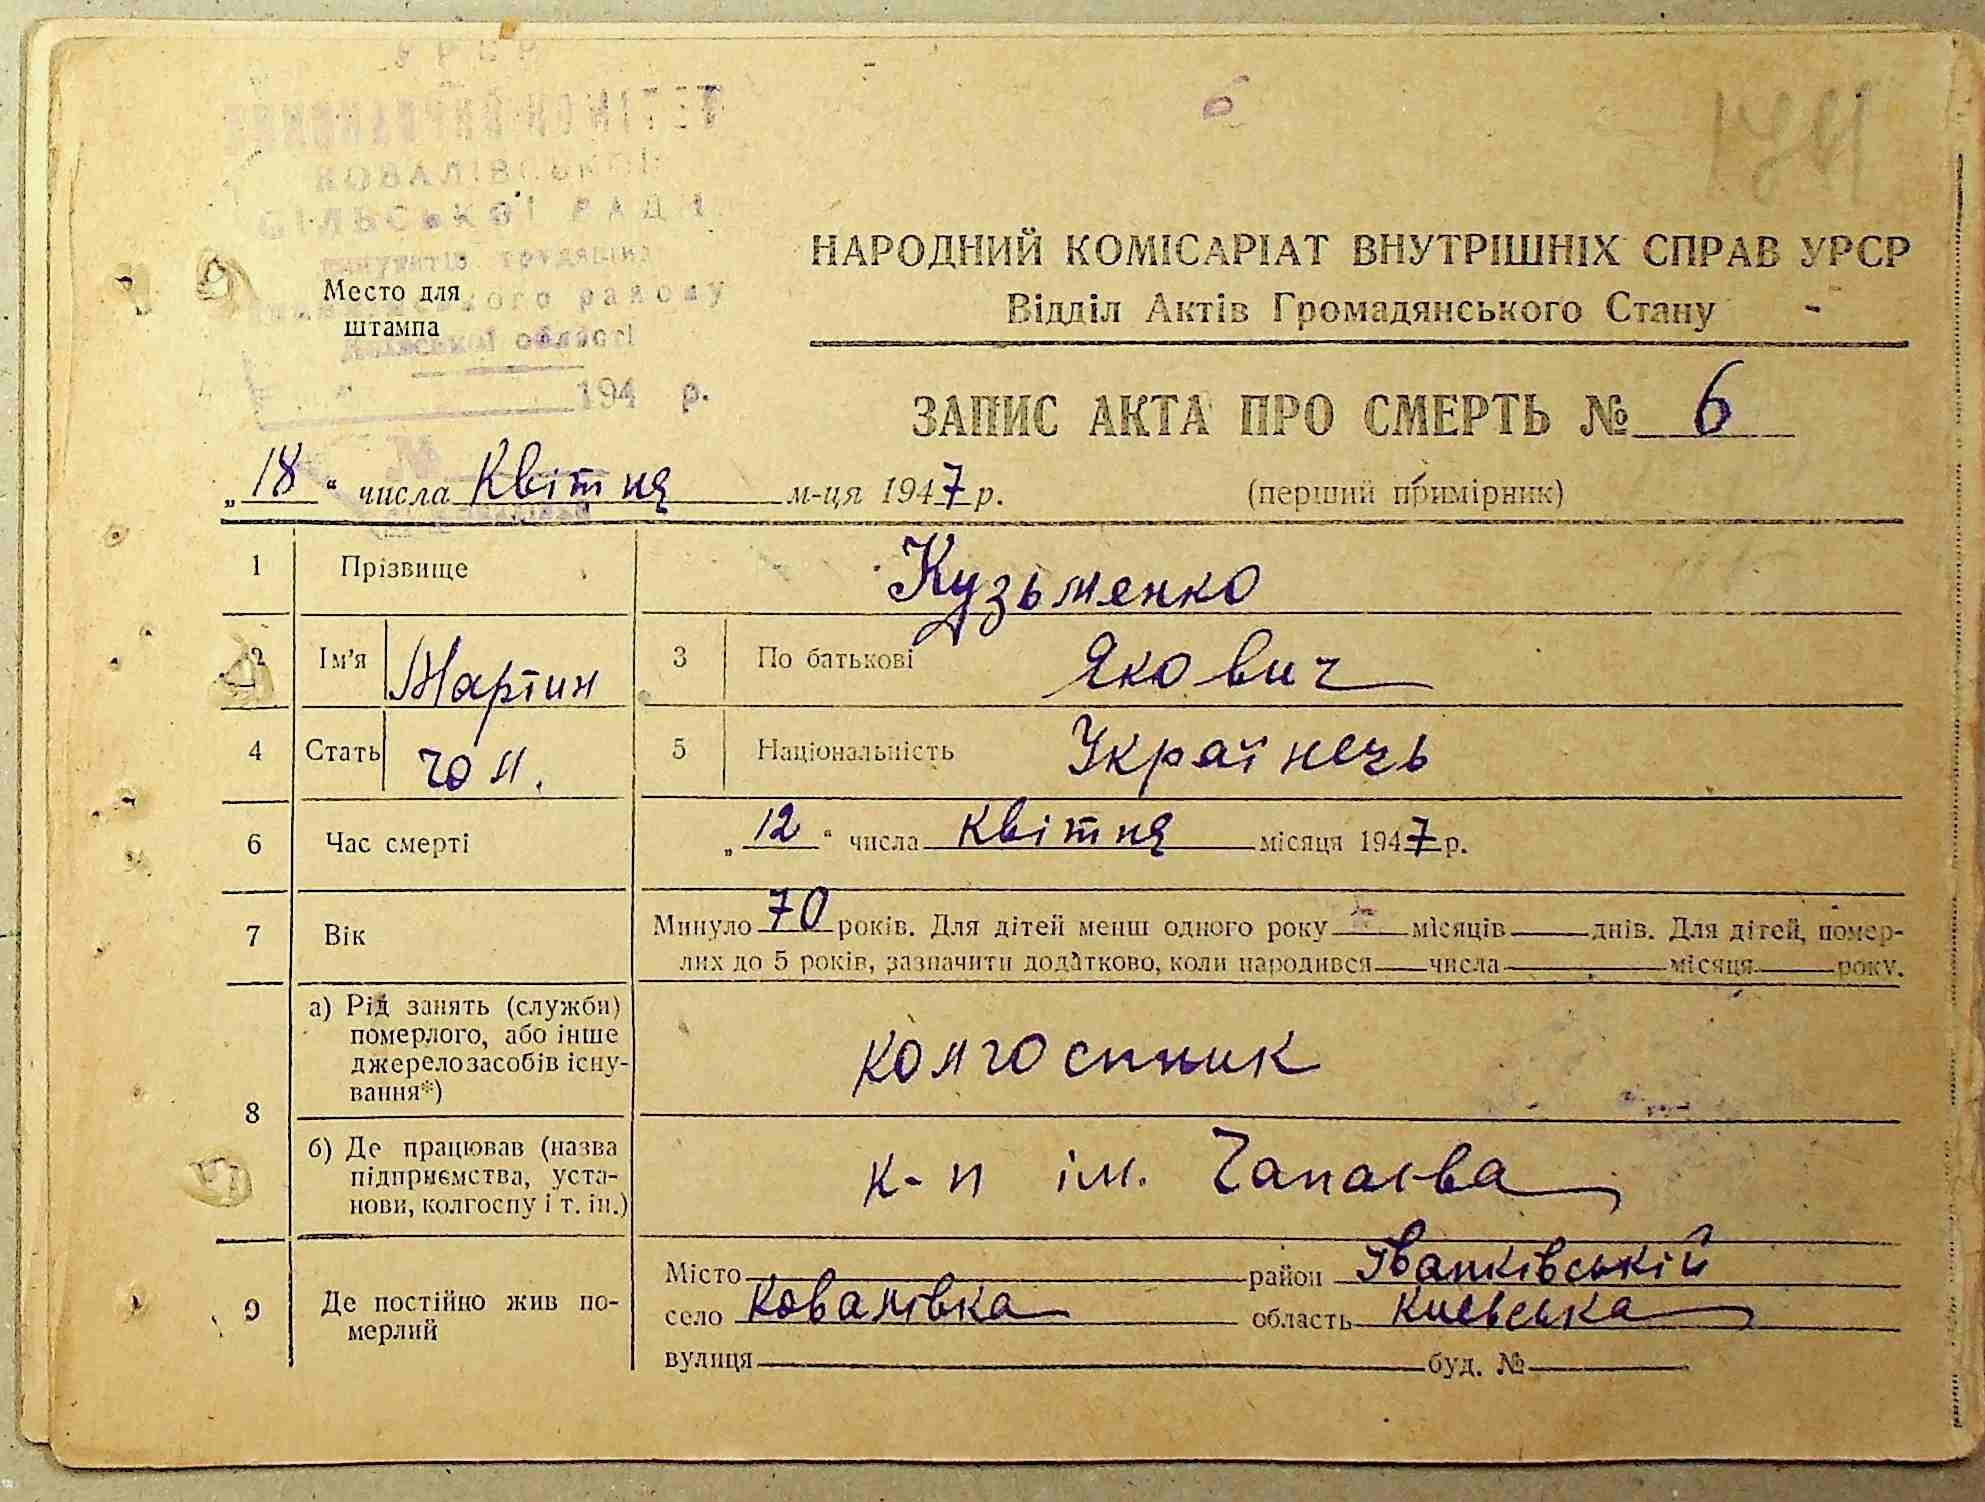 УРСР
КОВАЛІВСЬКОЇ
СІЛЬСЬКОЇ РАДИ
депутатів трудящих
району
області
194 р.
№
Место для
штампа
6
НАРОДНИЙ КОМІСАРІАТ ВНУТРІШНІХ СПРАВ УРСР
Відділ Актів Громадянського Стану
ЗАПИС АКТА ПРО СМЕРТЬ № 6
„18“ числа Квітня м-ця 1947 р.
(перший примірник)
1 Прізвище Кузьменко
2 Ім'я Мартин 3 По батькові Якович
4 Стать чол. 5 Національність Українець
6 Час смерті „12“ числа квітня місяця 1947 р.
7 Вік Минуло 70 років. Для дітей менш одного року місяців днів. Для дітей, помер-
лих до 5 років, зазначити додатково, коли народився числа місяця року.
8 а) Рід занять (служби)
померлого, або інше
джерело засобів існу-
вання*)
колгоспник
б) Де працював (назва
підприємства, уста-
нови, колгоспу і т. ін.)
к-п ім. Чапаєва
9 Де постійно жив по-
мерлий
Місто район Іванківській
село Ковалівка область Киевська
вулиця буд. №